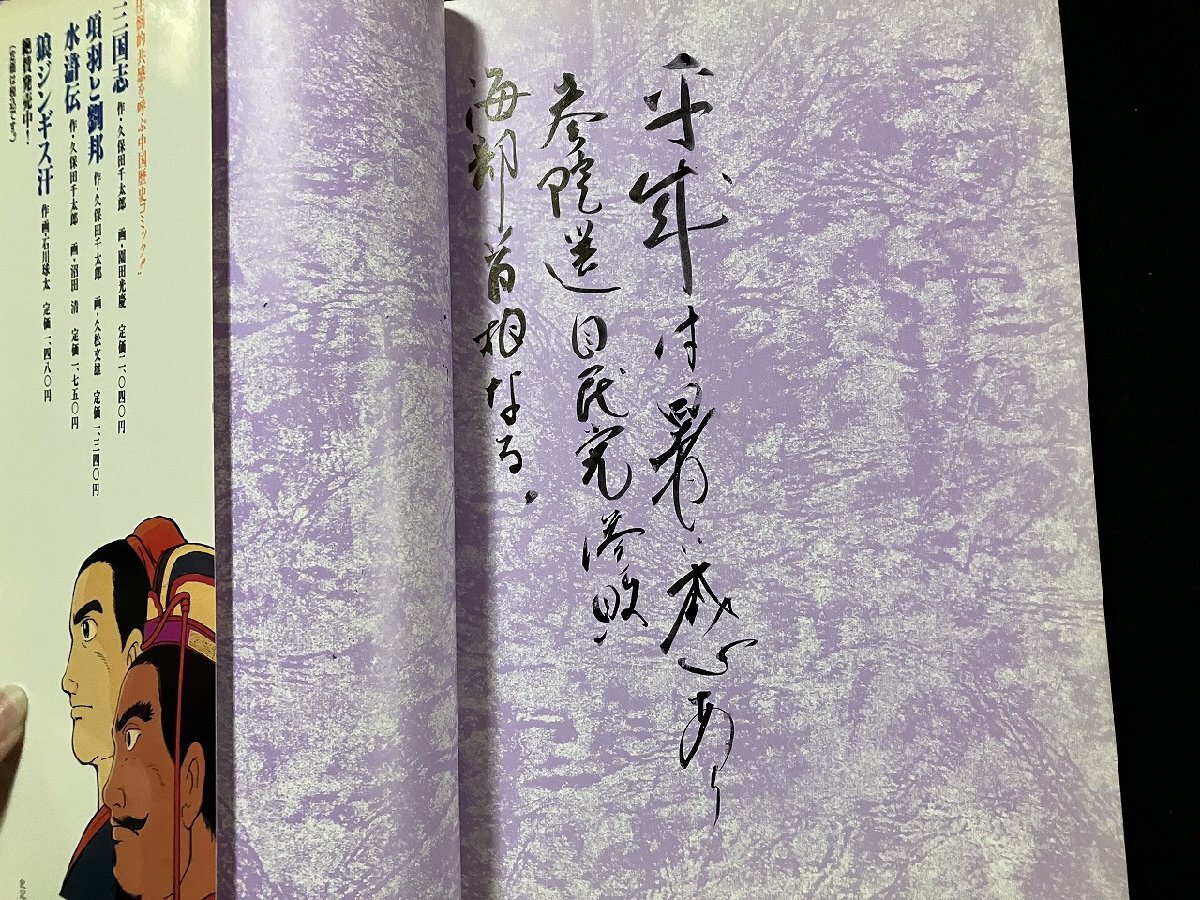 平成は暑い感あり
参院選自民党惨敗
海部首相なる.
圧倒的共感を呼ぶ中国歴史コミック!!
三国志 作・久保田千太郎 画・園田光慶 定価二、〇四〇円
項羽と劉邦 作・久保田千太郎 画・久松文雄 定価一、三四〇円
水滸伝 作・久保田千太郎 画・沼田 清 定価一、七五〇円
狼ジンギス汗 作画・石川球太 定価一、四八〇円
絶賛発売中!
(定価は税込です。)